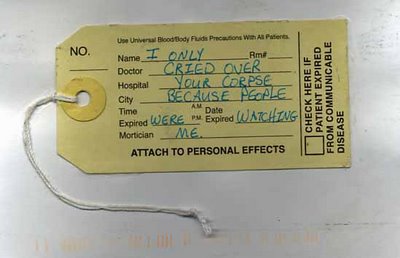 Use Universal Blood/Body Fluids Precautions With All Patients.
NO.
Name I ONLY Rm#
Doctor CRIED OVER
Hospital YOUR CORPSE
City BECAUSE PEOPLE
Time A.M. Date
Expired WERE P.M. Expired WATCHING
Mortician ME.
ATTACH TO PERSONAL EFFECTS
CHECK HERE IF
PATIENT EXPIRED
FROM COMMUNICABLE
DISEASE